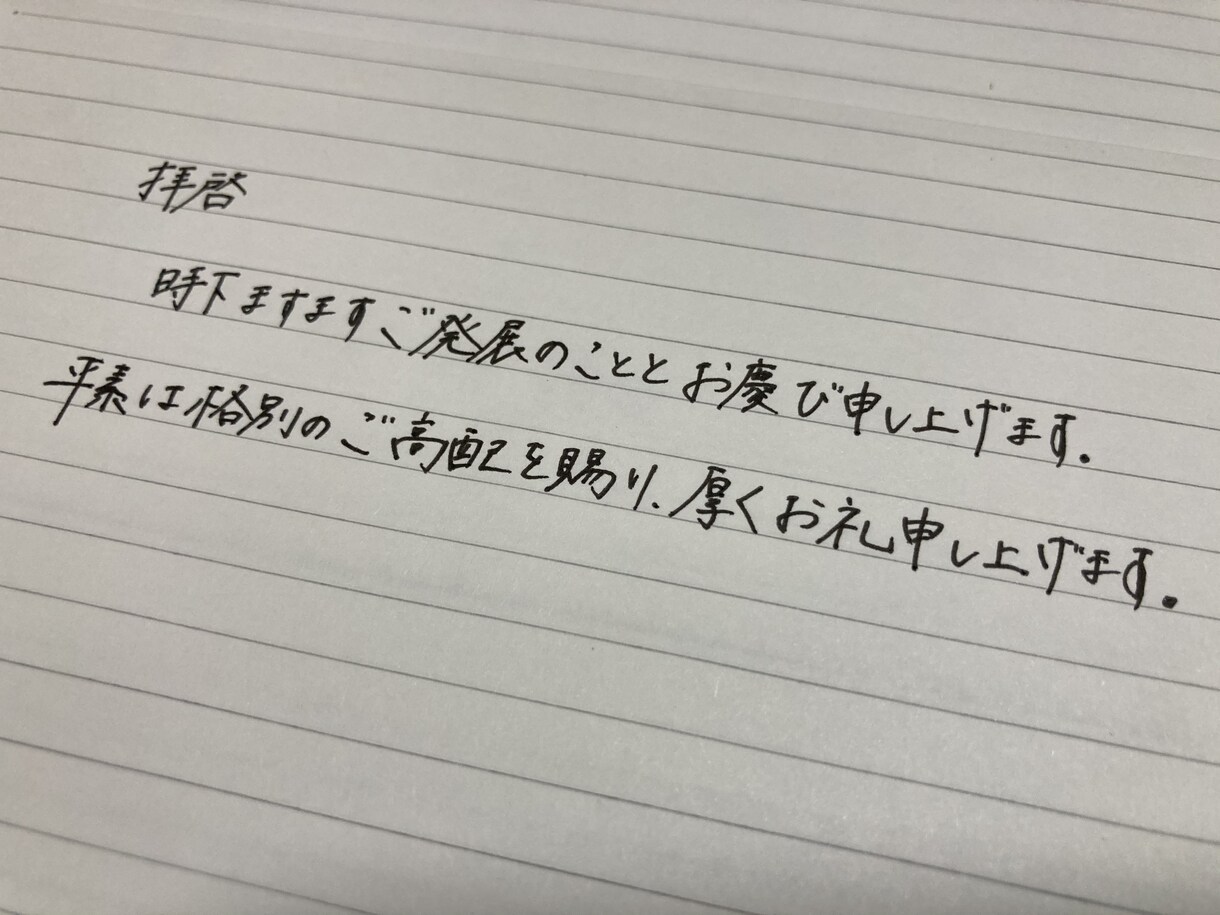 拝啓
時下ますますご発展のこととお慶び申し上げます。
平素は格別のご高配を賜り、厚くお礼申し上げます。